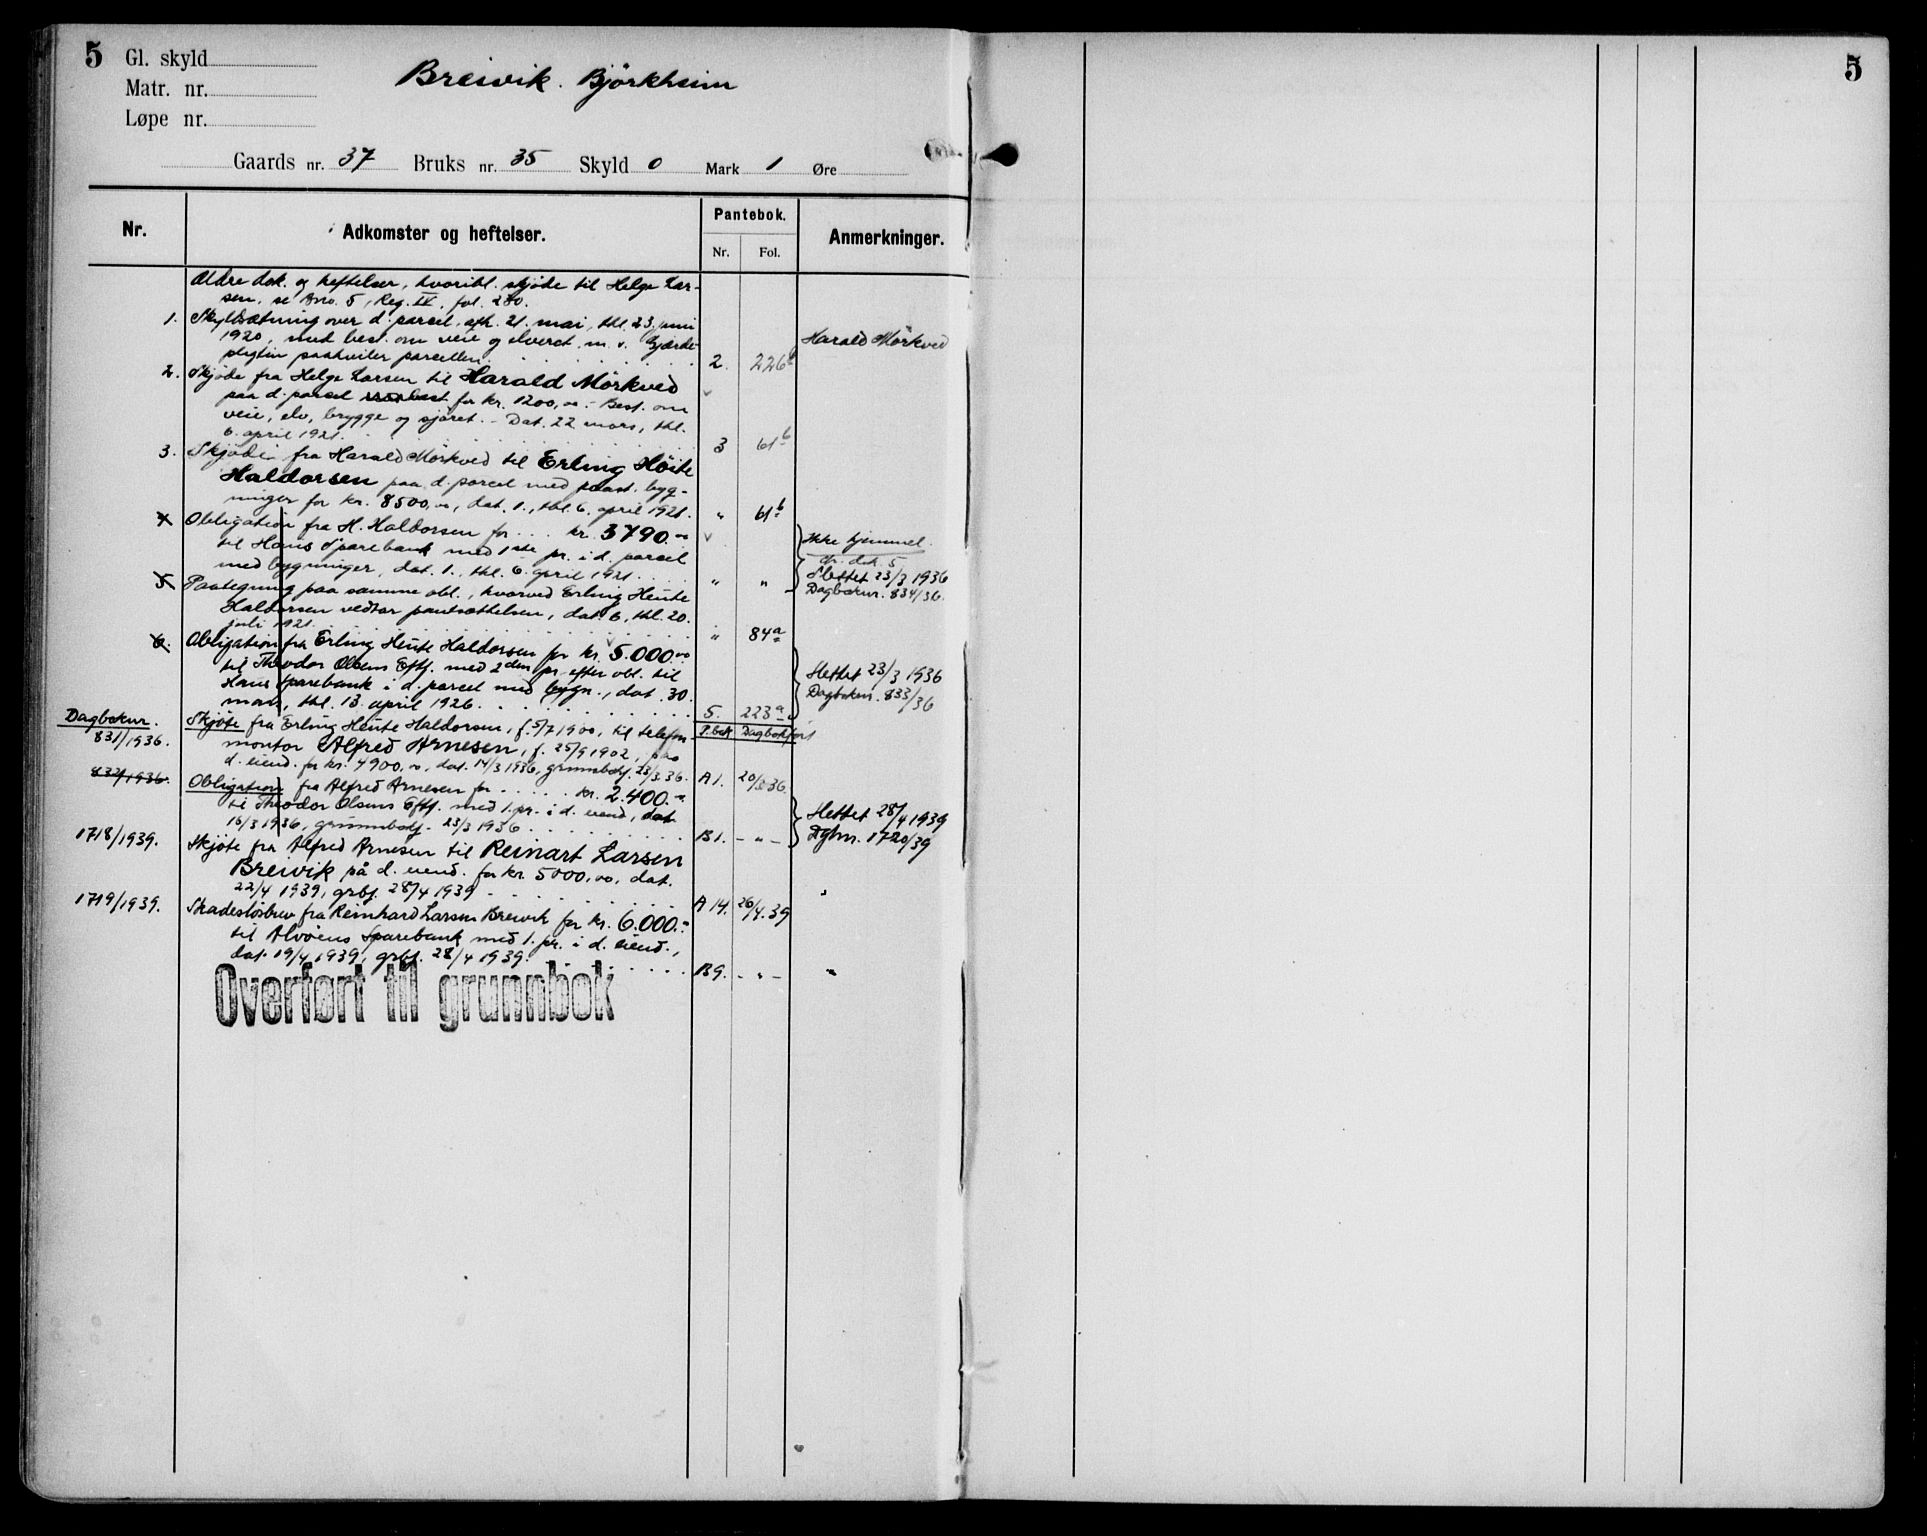 5
5
Gl. skyld
Matr. nr.
Løpe nr.
Breivik. Björkheim
Gaards nr. 37 Bruks nr. 35 Skyld 0 Mark 1 Øre
Nr. Adkomster og heftelser. Pantebok. Anmerkninger.
Nr. Fol.
Ældre dok. og heftelser, hvoribl. skjøte til Helge Lar-
sen, se Bno. 5, Reg. IV, fol. 280.
1. Skyldsætning over d. parcel, afh. 21. mai, thl. 23. juni
1920, med best. om veie og elveret m. v. Gjærde-
pligtin paahviler parcellen. 2. 226b Harald Mörkved
2. Skjøde fra Helge Larsen til Harald Mörkved
paa d. parcel for kr. 1200,00.- Best. om
veie, elv, brygge og sjøret. - Dat. 22 mars, thl.
6. april 1921. 3 61b
3. Skjøde fra Harald Mörkved til Erling Höite
Haldorsen paa d. parcel med paast. byg-
ninger for kr. 8500,00, dat. 1., thl. 6. april 1921. " 61b
4 Obligation fra H. Haldorsen for ... kr. 3790.00
til Haus Sparebank med 1ste pr. i d. parcel
med bygninger, dat. 1., thl. 6. april 1921. " " Ikke hjemmel.
cfr. dok. 5
Slettet 23/3 1936
Dagboknr. 834/36.
5. Paategning paa samme obl., hvorved Erling Heute
Haldorsen vedtar pantsættelsen, dat. 6, thl. 20.
juli 1921. " 84a
6. Obligation fra Erling Heute Haldorsen for kr. 5.000.00
til Theodor Olsens Eftf. med 2den pr. efter obl. til
Haus Sparebank i d. parcel med bygn., dat. 30.
mars, thl. 13. april 1926. 5. 223a Slettet 23/3 1936
Dagboknr. 833/36
Dagboknr. P.bok Dagbokført
831/1936. Skjøte fra Erling Heute Haldorsen, f. 5/7 1900, til telefon
montør Alfred Arnesen, f. 25/9 1902, paa
d. eiend. for kr. 4900,00, dat. 14/3 1936, grunnbokf. 23/3 36. A1. 20/3 36.
832/1936. Obligation fra Alfred Arnesen for ..... kr. 2.400.-
til Theodor Olsens Eftf. med 1. pr. i d. eiend., dat
16/3 1936, grunnbokf. 23/3 1936 B1. - " - Slettet 28/4 1939
Dgbnr. 1720/39
1718/1939. Skjøte fra Alfred Arnesen til Reinart Larsen
Breivik på d. eiend. for kr. 5000,00, dat.
22/4 1939, grbf. 28/4 1939 A 14. 26/4.39
1719/1939. Skadesløsbrev fra Reinhard Larsen Breivik for kr. 6.000.-
til Alvøens Sparebank med 1. pr. i d. eiend.,
dat. 19/4 1939, grbf. 28/4 1939. B9. - " - "
Overført til grunnbok